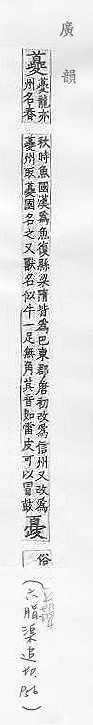 廣韻
夔
夔龍亦州名春
秋時魚國漢爲魚復縣梁隋皆爲巴東郡唐初改爲信州又改爲
夔州取夔國名之又獸名似牛一足無角其音如雷皮可以冒鼓
䕫
俗
(六脂渠追切 P56)